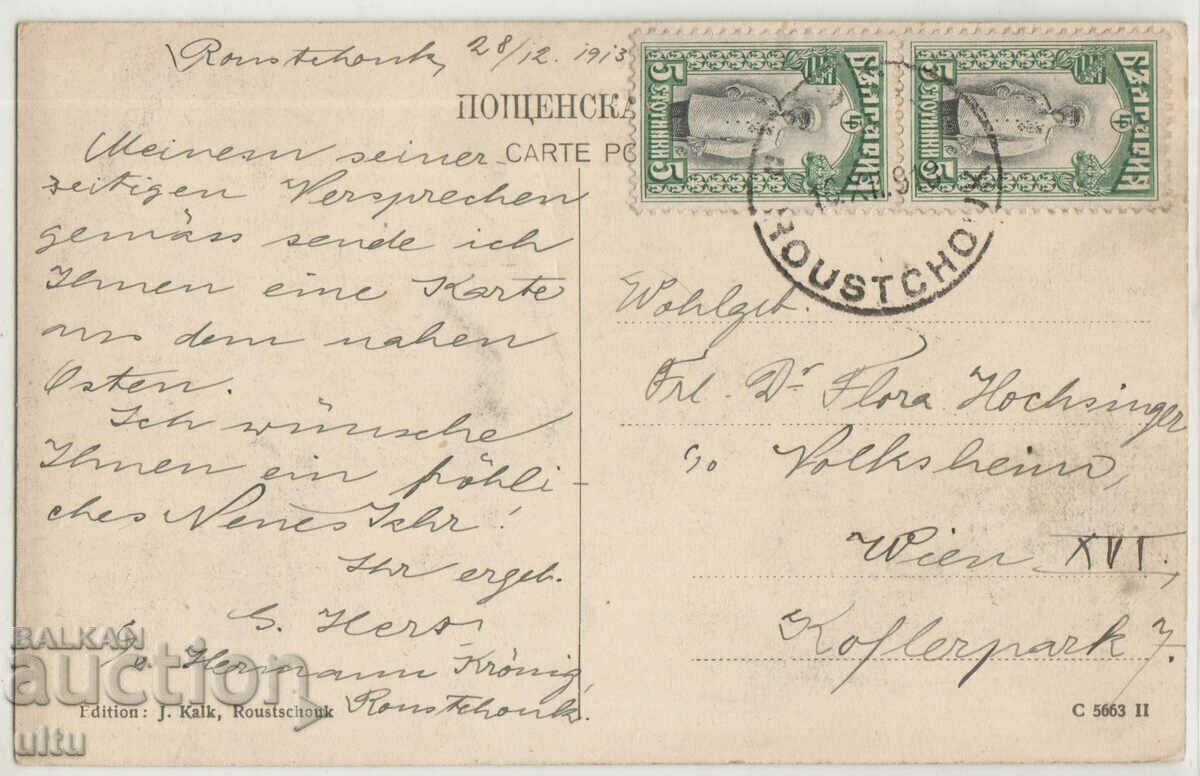 Roustchouk, 28/12. 1913
ПОЩЕНСКА
CARTE PO
Meinem seiner-
zeitigen Versprechen
gemäss sende ich
Ihnen eine Karte
aus dem nahen
Osten.
Ich wünsche
Ihnen ein fröhli-
ches Neues Jahr!
Ihr ergeb.
G. Herz
c/o Hermann Krönig,
Roustchouk.
Edition: J. Kalk, Roustschouk
БЪЛГАРИЯ
5 СТОТИНКИ 5
БЪЛГАРИЯ
5 СТОТИНКИ 5
ROUSTCHOUK
Wohlgeb.
Frl. Dr Flora Hochsinger
c/o Volksheim,
Wien XVI.,
Koflerpark 7.
C 5663 II
BALKAN
auction
ultu